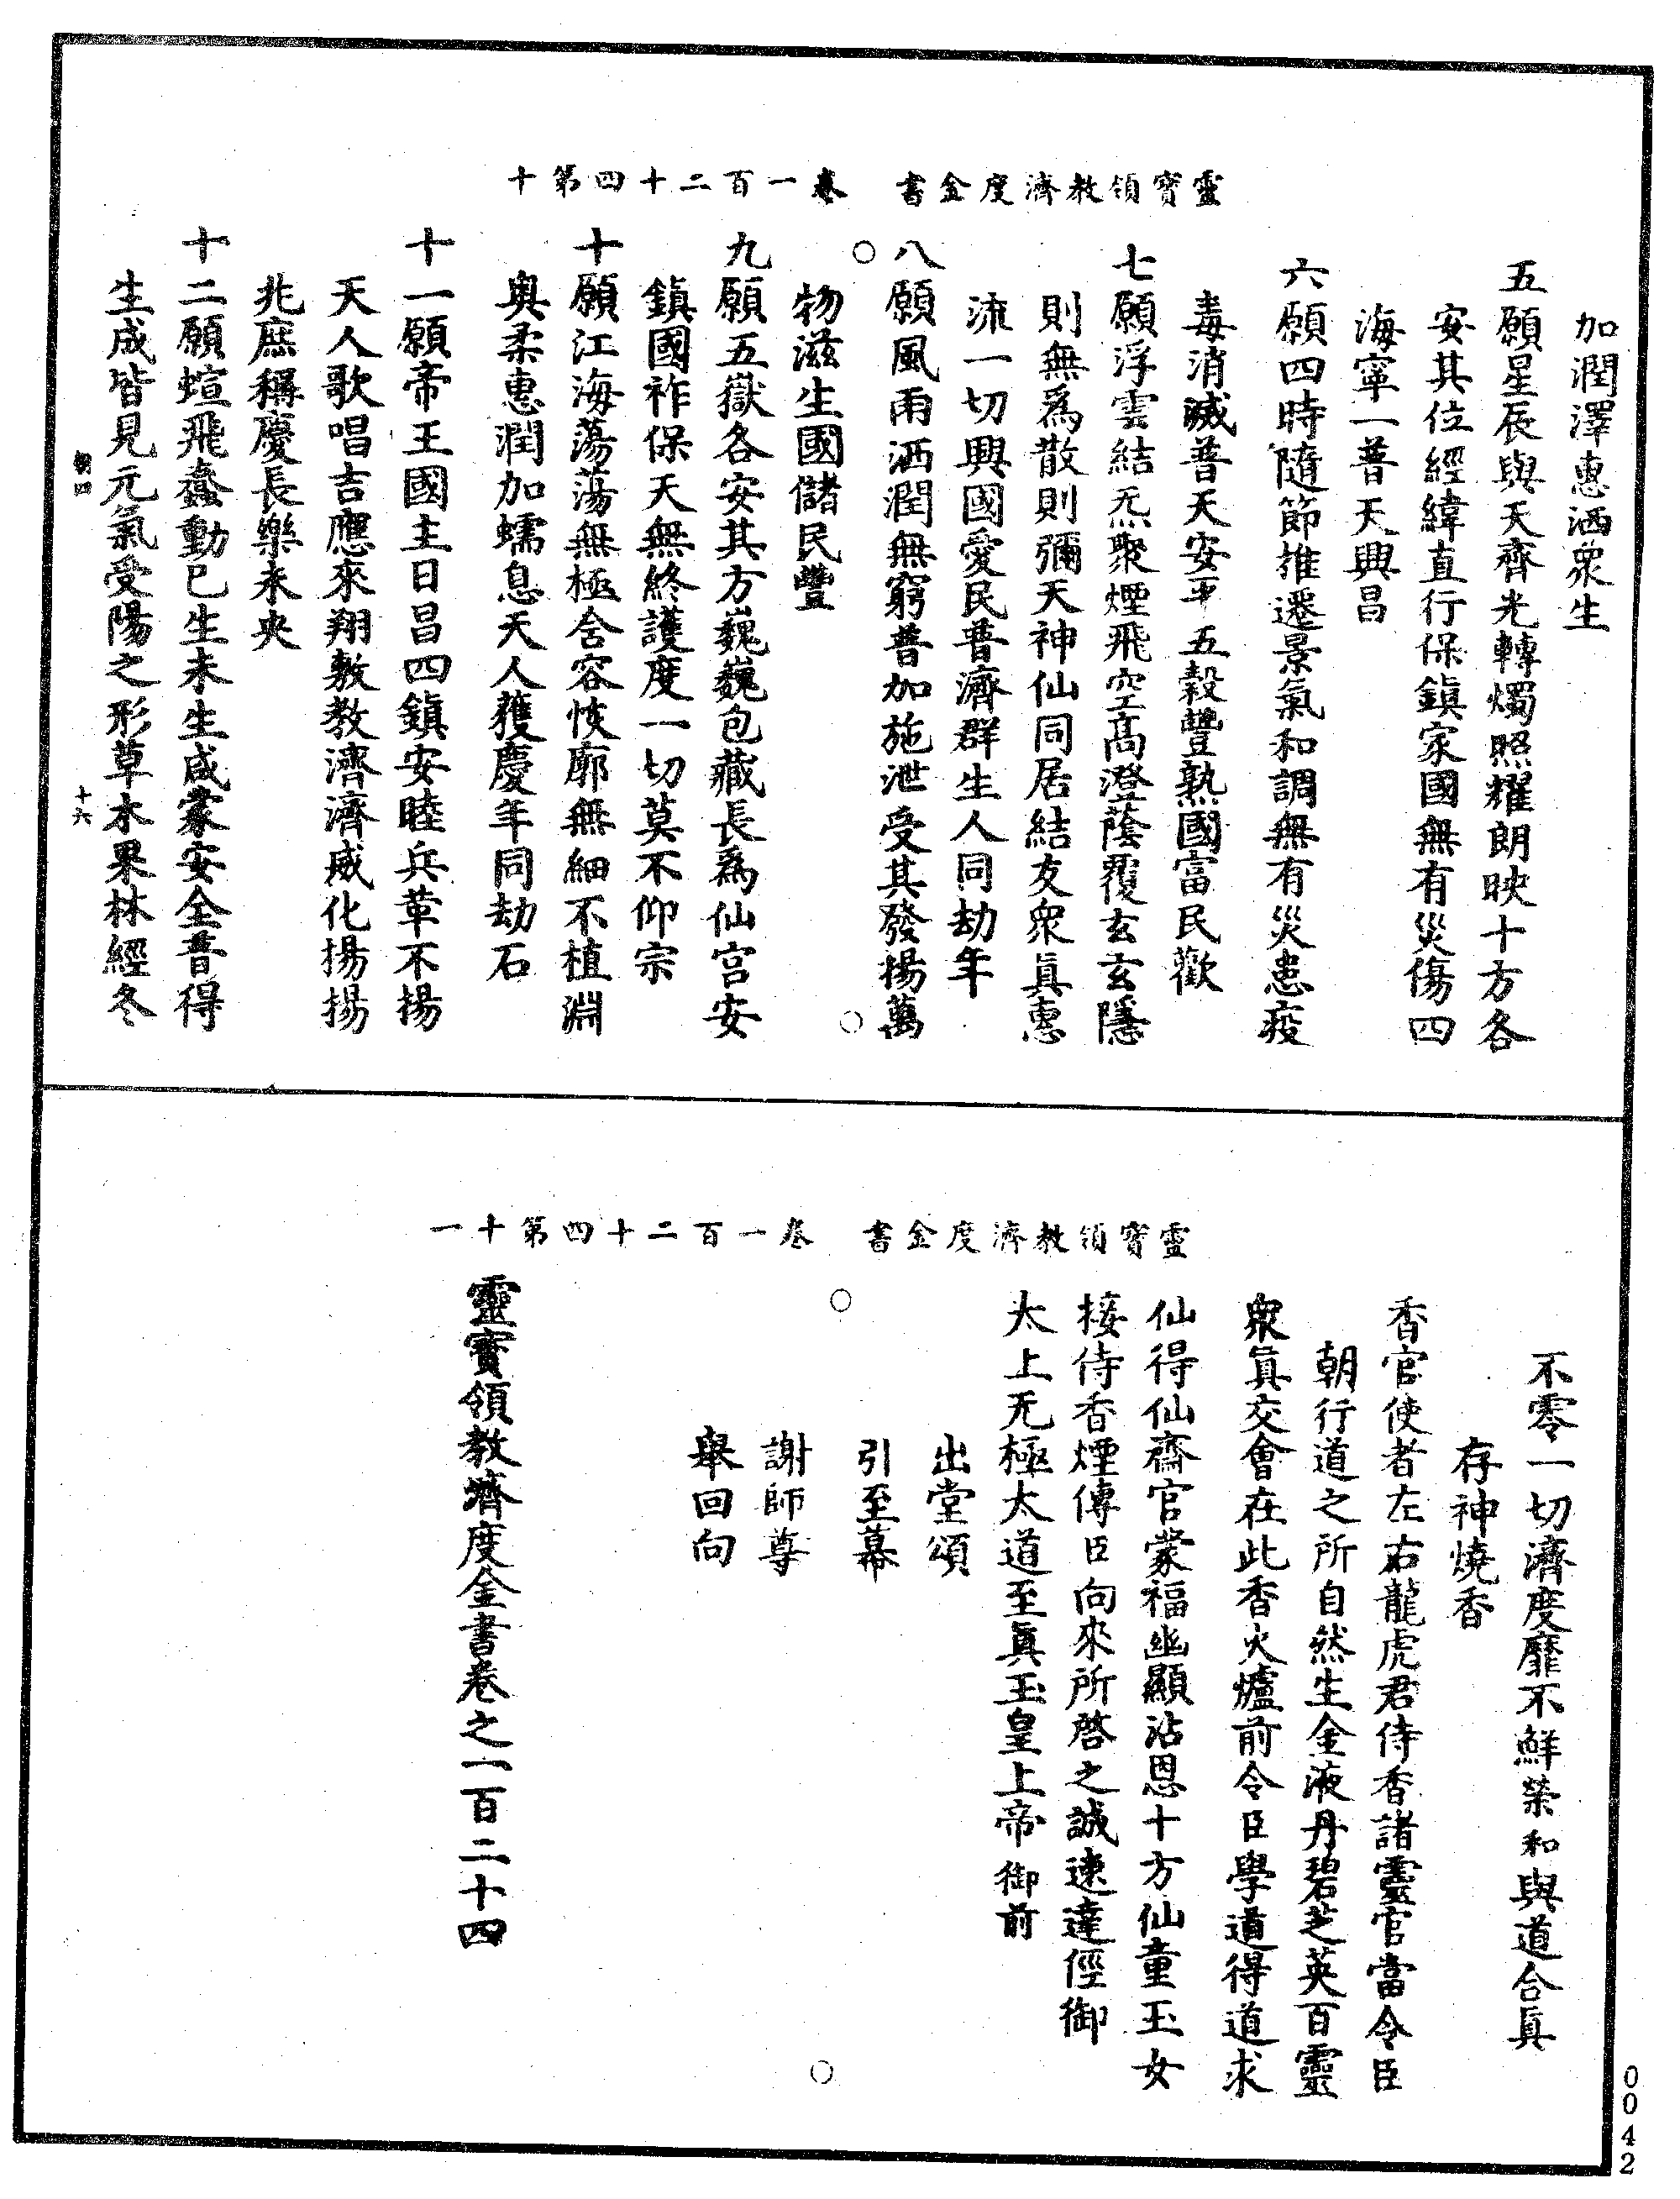 靈寶領教濟度金書　卷一百二十四第十
加潤澤惠洒衆生
五願星辰與天齊光轉燭照耀朗映十方各
安其位經緯直行保鎮家國無有災傷四
海寧一普天興昌
六願四時隨節推遷景氣和調無有災患疫
毒消滅普天安平五穀豐熟國富民歡
七願浮雲結炁聚煙飛空高澄蔭覆玄玄隱
則無爲散則彌天神仙同居結友衆眞惠
流一切興國愛民普濟群生人同劫年
八願風雨洒潤無窮普加施泄受其發揚萬
物滋生國儲民豐
九願五嶽各安其方巍巍包藏長爲仙宮安
鎮國祚保天無終護度一切莫不仰宗
十願江海蕩蕩無極舍容恢廓無細不植淵
奧柔惠潤加蠕息天人蒦慶年同劫石
十一願帝王國主日昌四鎮安睦兵革不揚
天人歌唱吉應來翔敷教濟濟威化揚揚
兆庶稱慶長樂未央
十二願蝖飛蠢動已生未生咸蒙安全普得
生成皆見元氣受陽之形草木果林經冬
朝四　十六
靈寶領教濟度金書　卷一百二十四第十一
不零一切濟度靡不鮮榮和與道合眞
存神燒香
香官使者左右龍虎君侍香諸靈官當令臣
朝行道之所自然生金液丹碧芝英百靈
衆眞交會在此香火爐前令臣學道得道求
仙得仙齋官蒙福幽顯沾恩十方仙童玉女
接侍香煙傳臣向來所啓之誠速達徑御
太上无極太道至眞玉皇上帝御前
出堂頌
引至幕
謝師尊
舉回向
靈寶領教濟度金書卷之一百二十四
0042